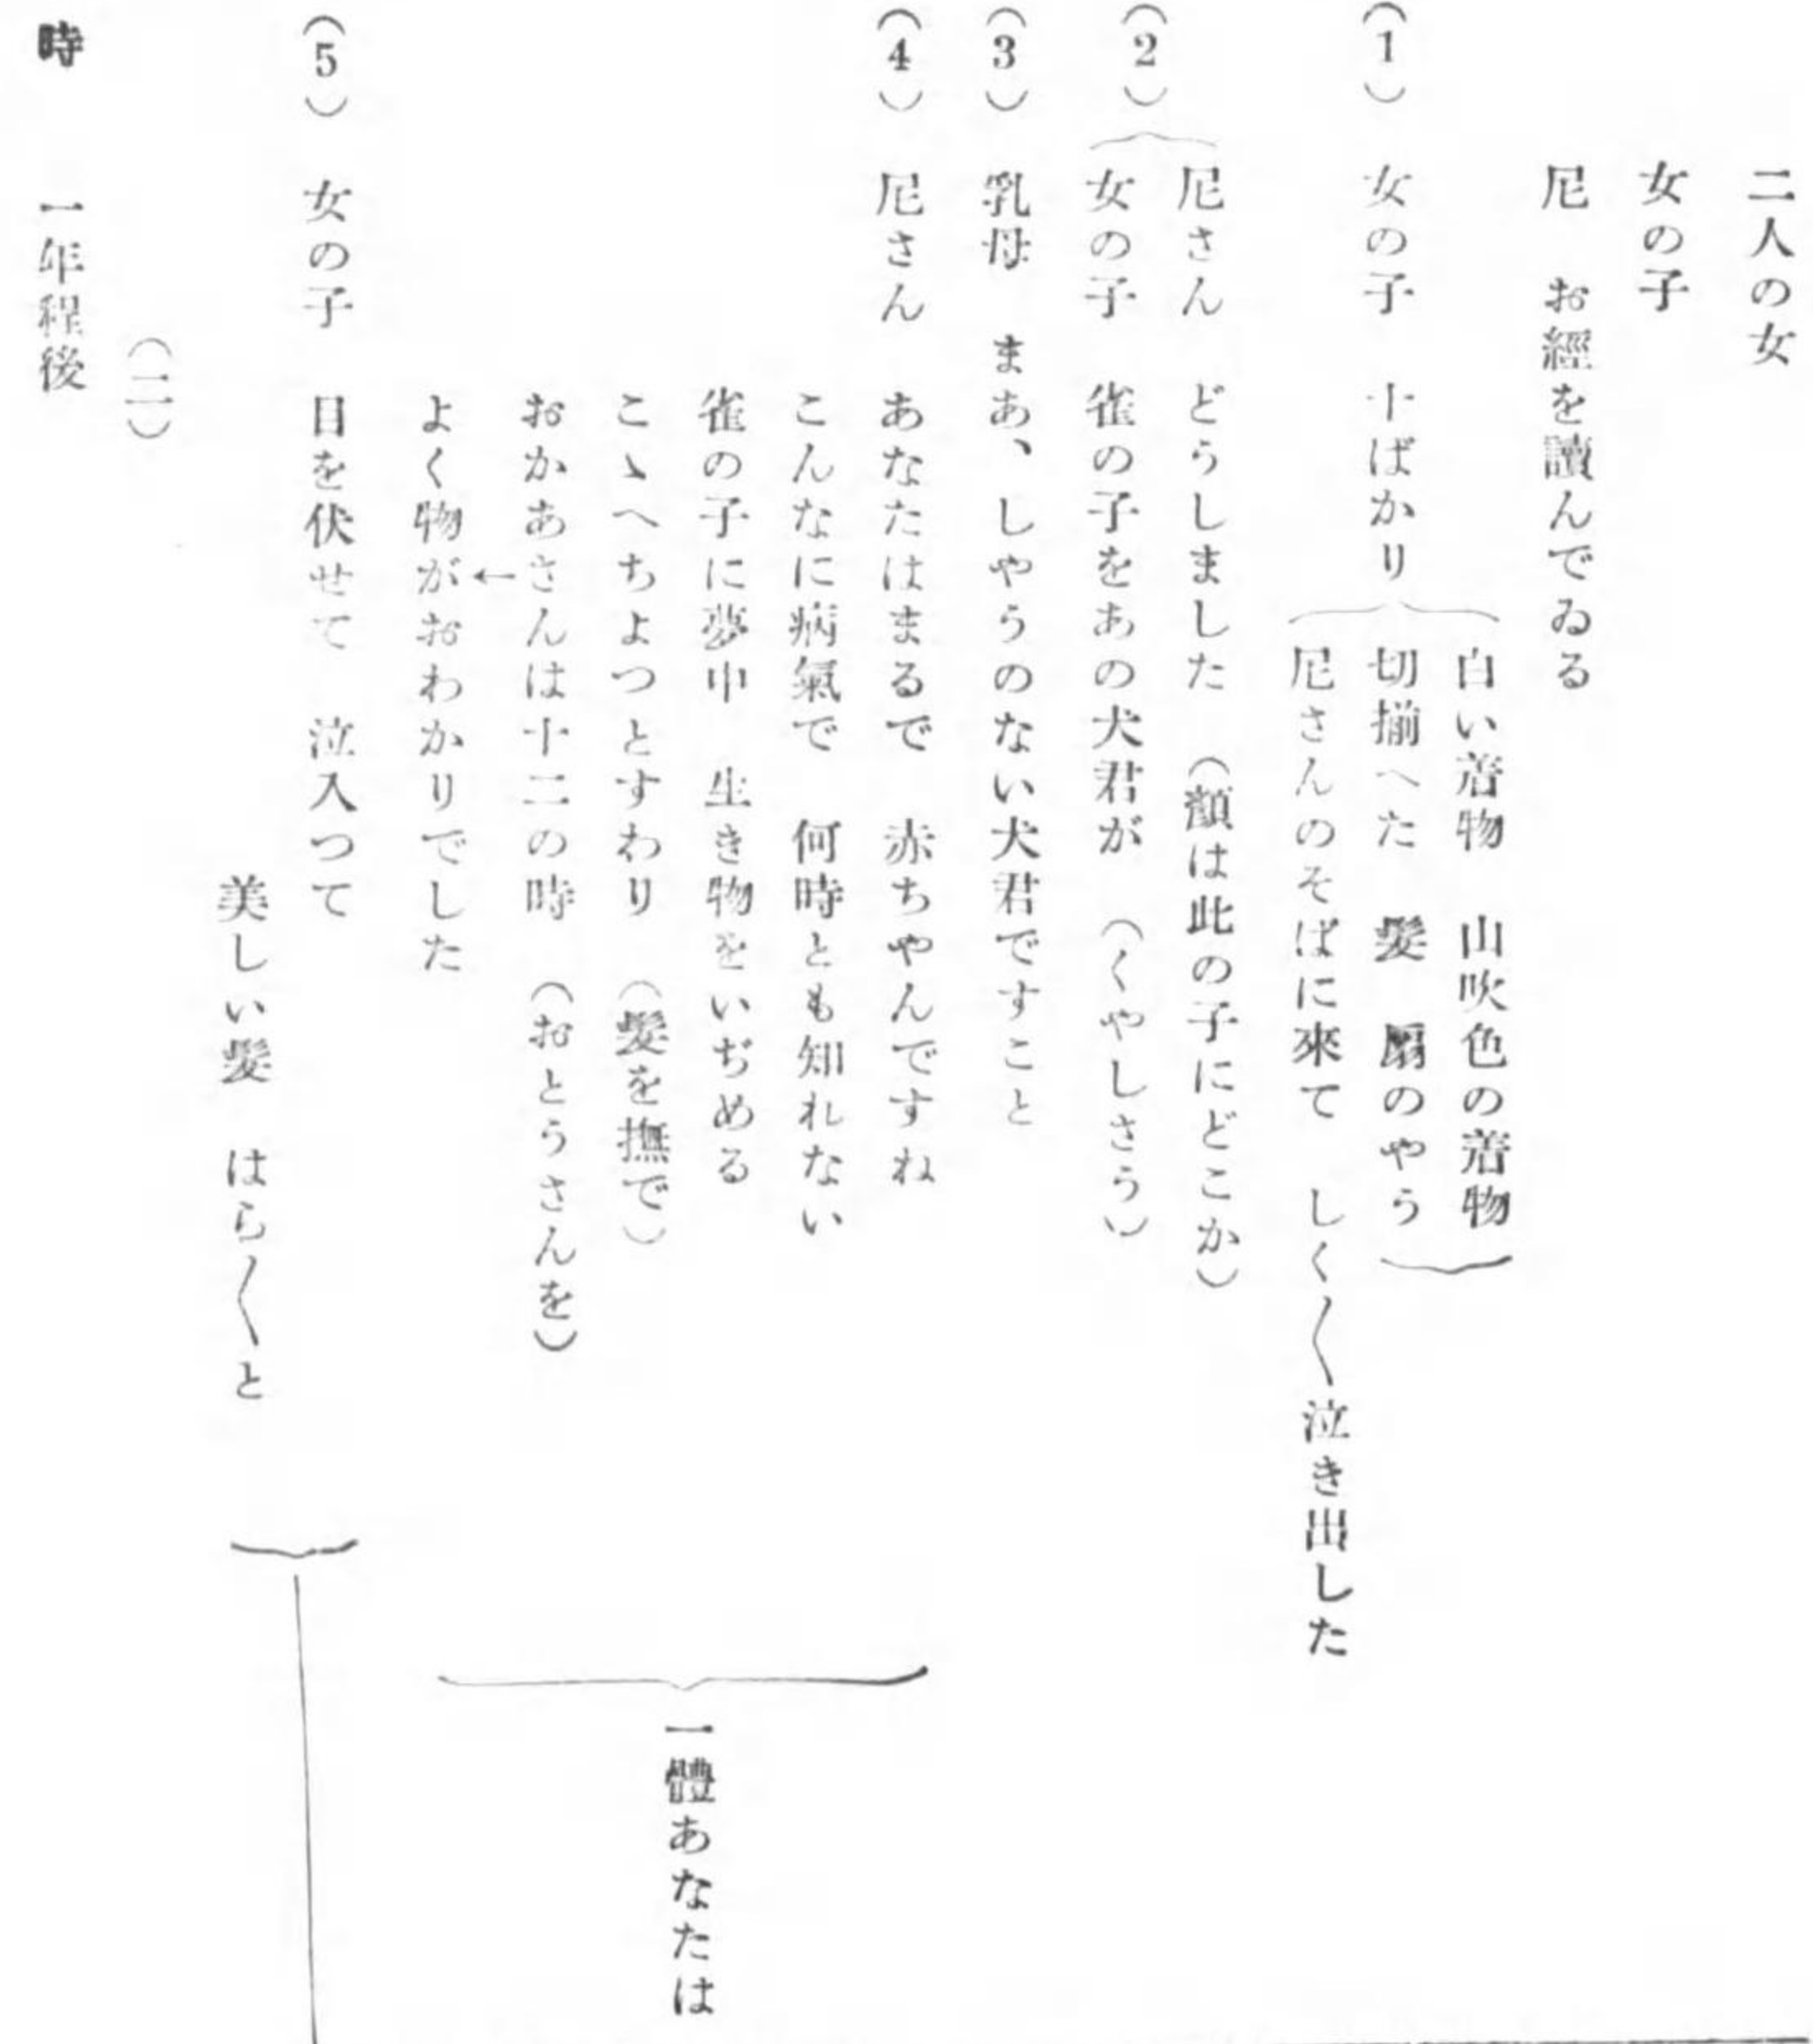 二人の女
女の子
尼　お經を讀んでゐる
（1）　女の子　十ばかり
白い着物　山吹色の着物
切揃へた　髮　扇のやう
尼さんのそばに來て　しく〳〵泣き出した
（2）
尼さん　どうしました　（顏は此の子にどこか）
女の子　雀の子をあの犬君が　（くやしさう）
（3）　乳母　まあ、しやうのない犬君ですこと
（4）　尼さん　あなたはまるで　赤ちやんですね
こんなに病氣で　何時とも知れない
雀の子に夢中　生き物をいぢめる
こゝへちよつとすわり　（髮を撫で）
おかあさんは十二の時　（おとうさんを）
←
よく物がおわかりでした
一體あなたは
（5）　女の子　目を伏せて　泣入つて
美しい髮　はら〳〵と
（二）
時　一年程後